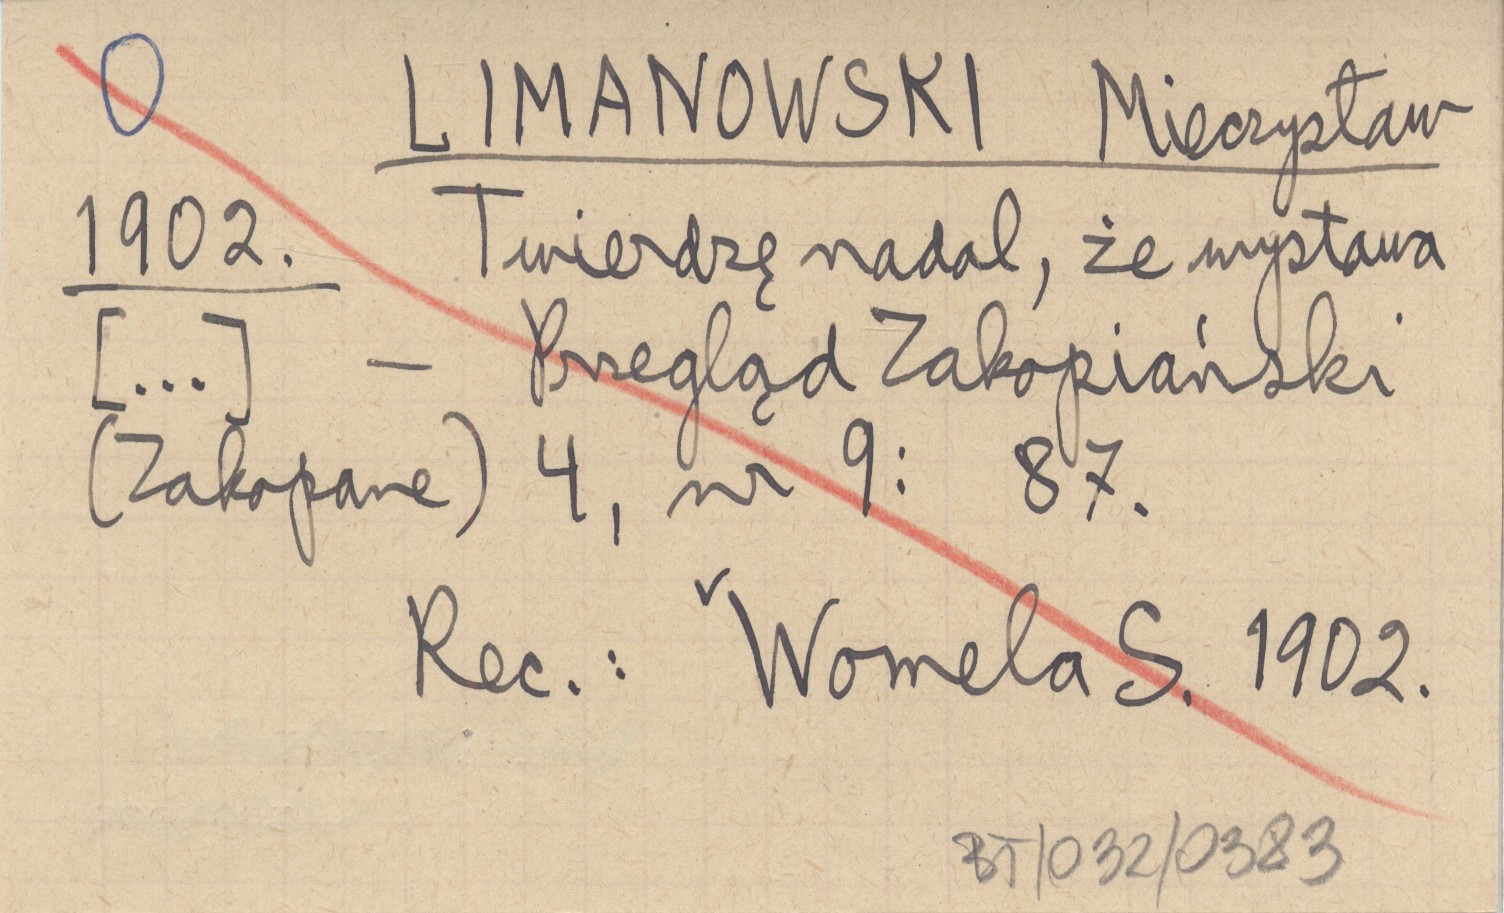 LIMANOWSKI Mieczysław
1902. Twierdzę nadal, że wystawa
[...] — Przegląd Zakopiański
(Zakopane) 4, nr 9: 87.
Rec.: Womela S. 1902.
BT/032/0383